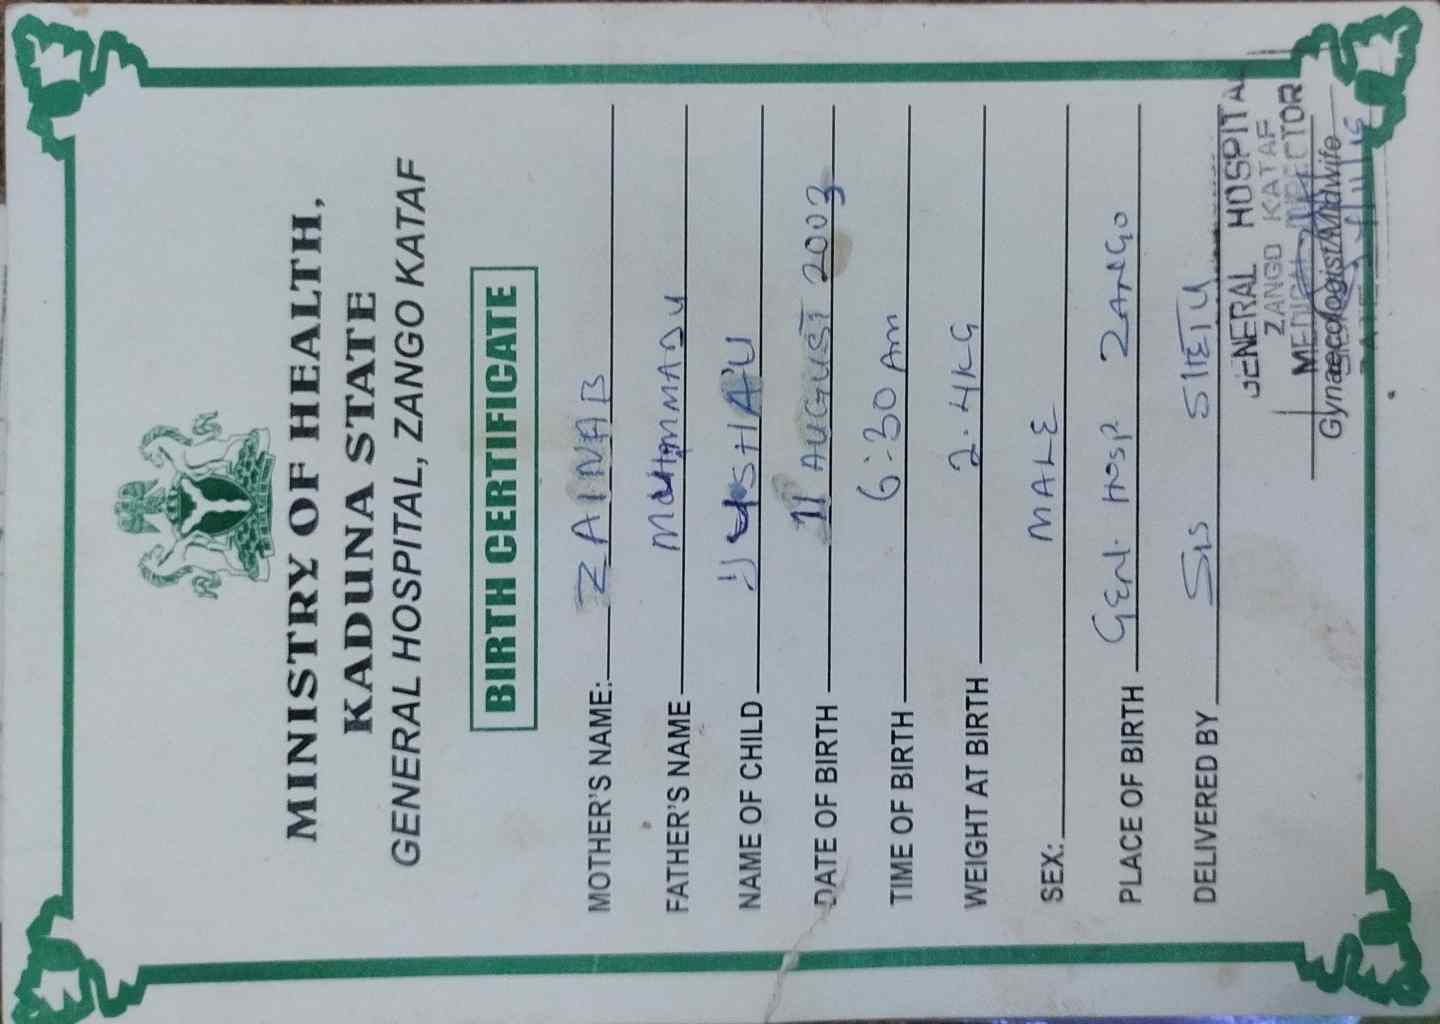 MINISTRY OF HEALTH,
KADUNA STATE
GENERAL HOSPITAL, ZANGO KATAF
BIRTH CERTIFICATE
MOTHER'S NAME: ZAINAB
FATHER'S NAME MUHAMMADU
NAME OF CHILD
DATE OF BIRTH 11 AUGUST 2003
TIME OF BIRTH 6:30 Am
WEIGHT AT BIRTH 2.4KG
SEX: MALE
PLACE OF BIRTH GENL HOSP ZANGO
DELIVERED BY SIS
GENERAL HOSPITAL
ZANGO KATAF
MEDICAL DIRECTOR
Gynaecologist/Midwife